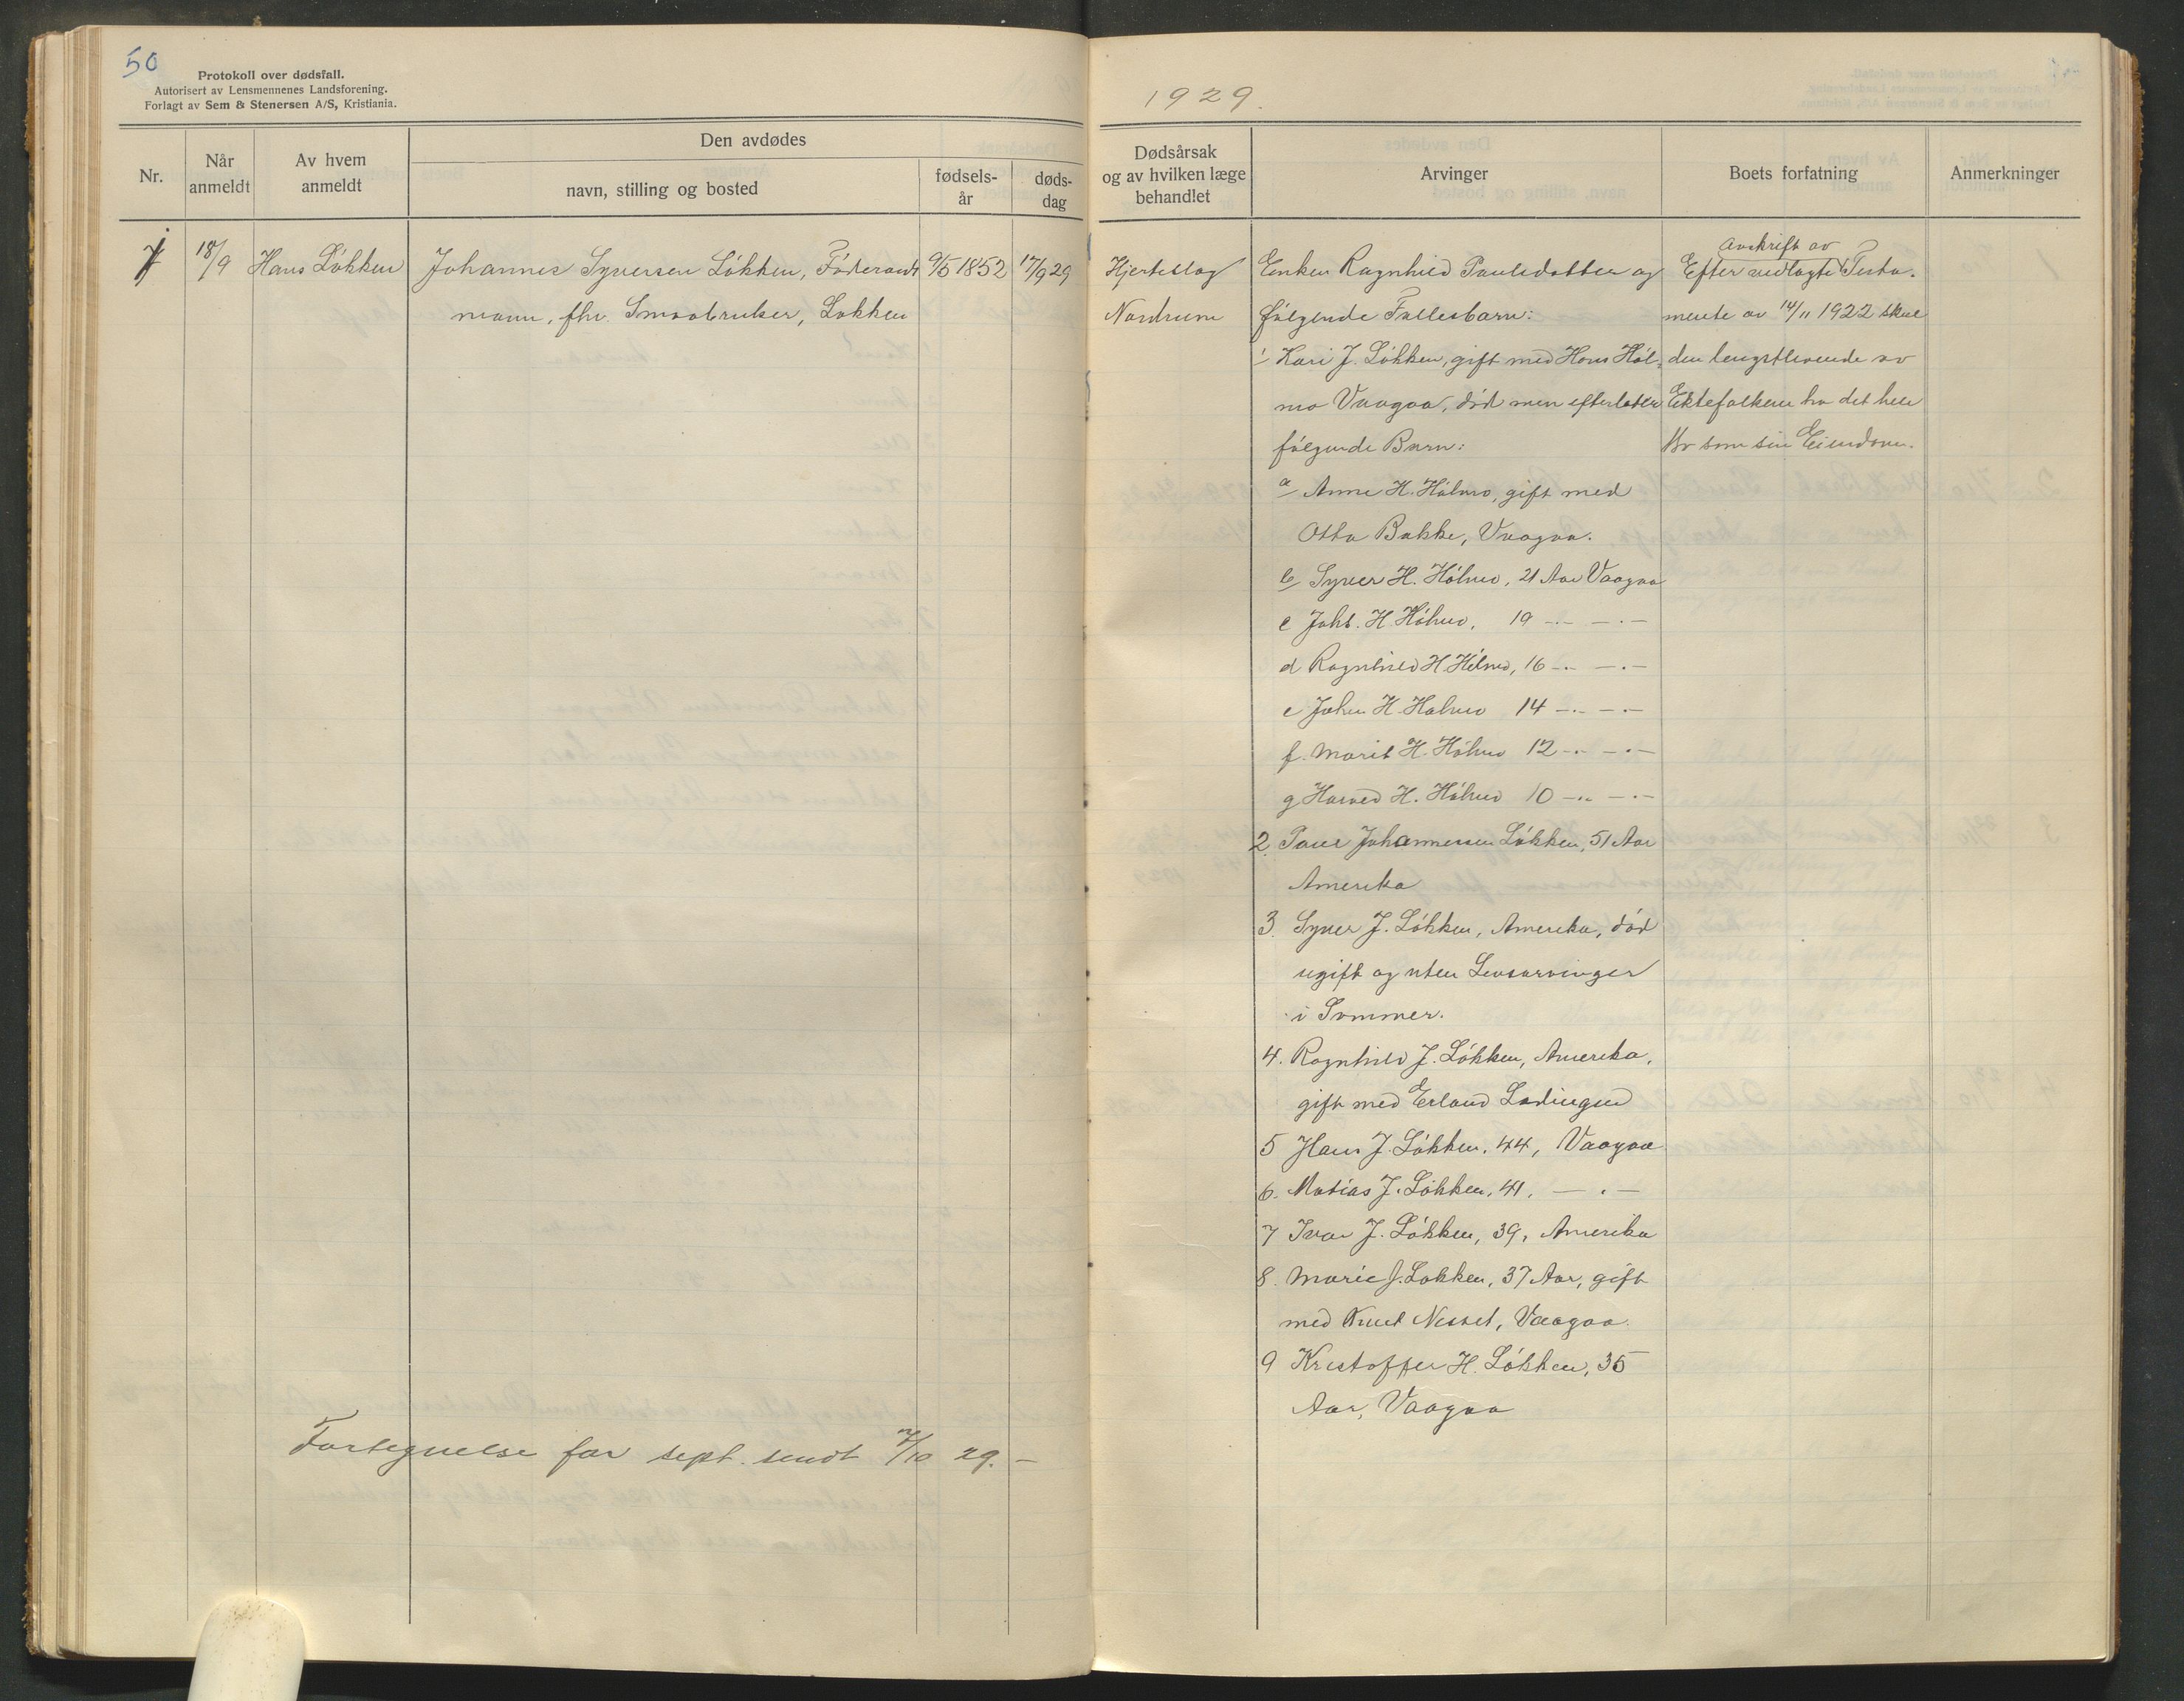 50
Protokoll over dødsfall.
Autorisert av Lensmennenes Landsforening.
Forlagt av Sem & Stenersen A/S, Kristiania.
Nr.
Når anmeldt
Av hvem anmeldt
Den avdødes
navn, stilling og bosted
fødsels-år
døds-dag
18/9 Hans Løkken Johannes Syversen Løkken, Føderaads 9/5 1852 17/9 29
mann, fhv. Smaabruker, Løkken
Fortegnelse for sept. sendt 7/10 29. –
1929.
Dødsårsak
og av hvilken læge
behandlet
Arvinger
Boets forfatning
Anmerkninger
Hjerteslag
Nordrum
Enken Ragnhild Paulsdatter og
følgende Fællesbarn:
1 Kari J. Løkken, gift med Hans Høl-
mo Vaagaa, død men efterlater
følgende Barn:
a Anne H. Hølmo, gift med
Otto Bakke, Vaagaa.
b Syver H. Hølmo, 21 Aar Vaagaa
c Johs. H. Hølmo, 19 –.– –.–
d Ragnhild H. Hølmo, 16 –.– –.–
e Johan H. Hølmo 14 –.– –.–
f. Marit H. Hølmo 12 –.– –.–
g H. Hølmo 10 –.– –.–
2. Paul Johannessen Løkken, 51 Aar
Amerika
3. Syver J. Løkken, Amerika, død
ugift og uten Livsarvinger
i Sommer.
4. Ragnhild J. Løkken, Amerika,
gift med Erland
5 Hans J. Løkken, 44, Vaagaa
6. Matias J. Løkken, 41, –.–
7 Ivar J. Løkken, 39, Amerika
8. Marie J. Løkken, 37 Aar, gift
med Knut Nesset, Vaagaa.
9 Kristoffer H. Løkken, 35
Aar, Vaagaa
avskrift av
Efter vedlagte Testa-
mente av 14/11 1922 skal
den lengstlevende av
Ektefolkene ha det hele
Bo som sin Eiendom.